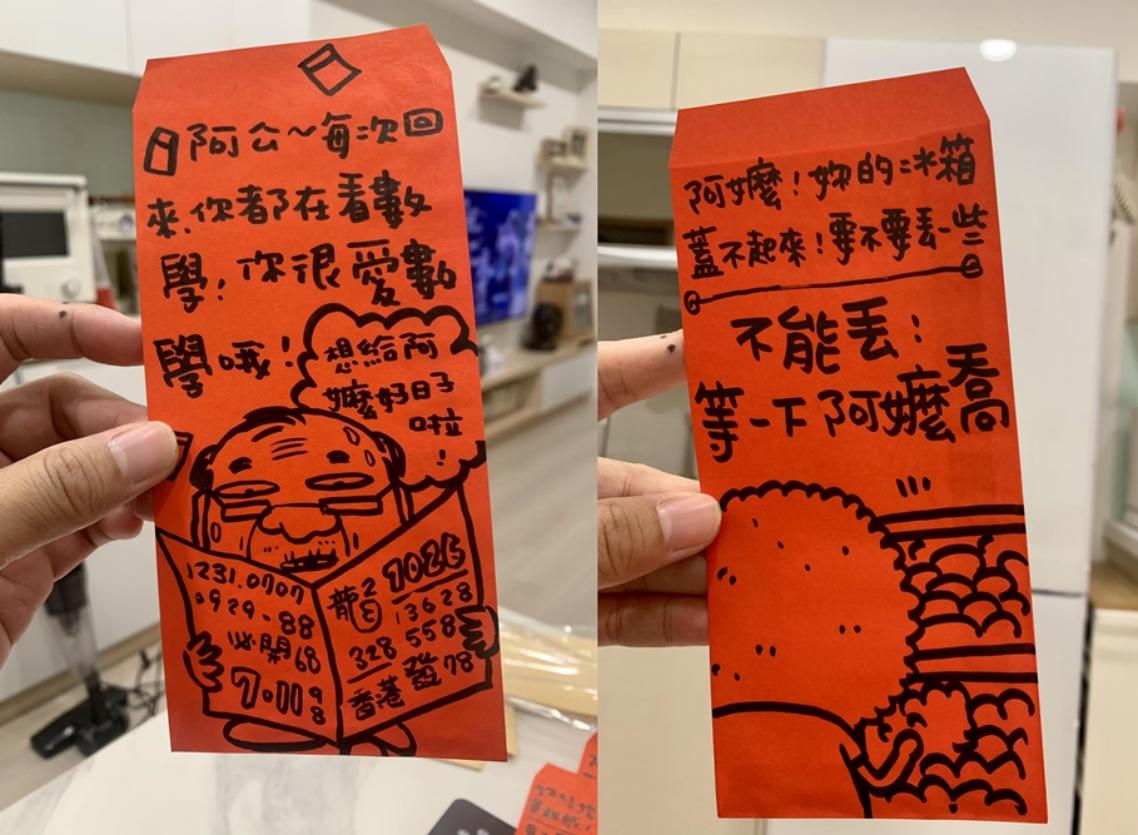 阿公~每次回
來,你都在看數
學,你很愛數
學哦!
想給阿
嬤好日子
啦!
1231.0707
0929.88
必開68
7.11
龍
7026
13628
328
558
香港 發78
阿嬤!妳的冰箱
蓋不起來!要不要丟一些
不能丟!
等一下阿嬤喬